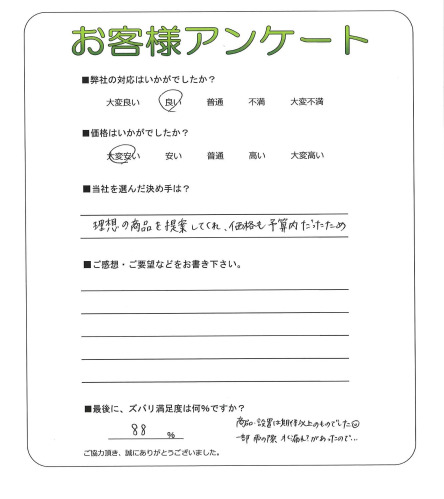 お客様アンケート
■弊社の対応はいかがでしたか？
大変良い 良い 普通 不満 大変不満
■価格はいかがでしたか？
大変安い 安い 普通 高い 大変高い
■当社を選んだ決め手は？
理想の商品を提案してくれ、価格も予算内だったため
■ご感想・ご要望などをお書き下さい。
■最後に、ズバリ満足度は何％ですか？
88 %
商品・設置は期待以上のものでした
一部 雨の際、水漏れがあったので…
ご協力頂き、誠にありがとうございました。